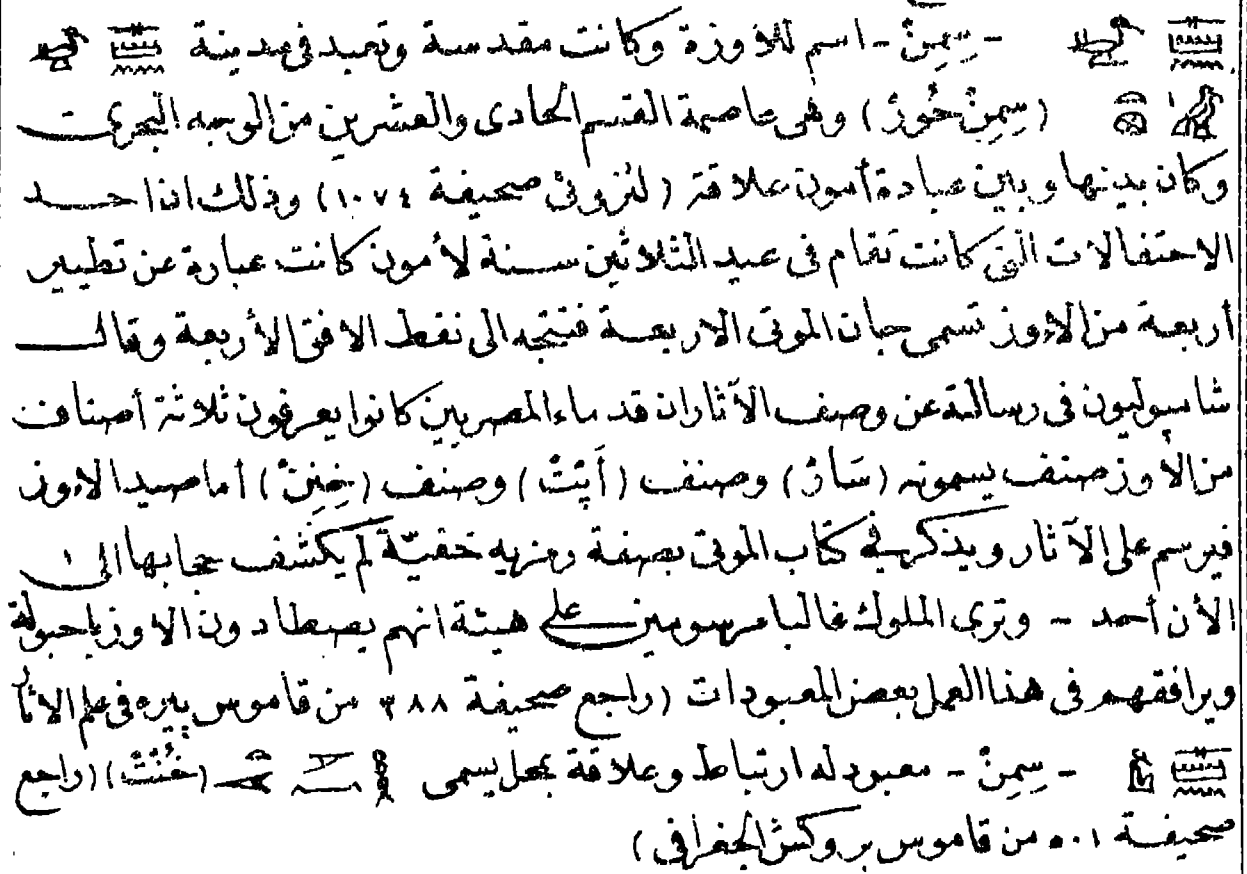 - سِمِنْ - اسم للأوزة وكانت مقدسة وتعبد فى مدينة
(سِمِنْ حُورْ) وهى عاصمة القسم الحادى والعشرين من الوجه البحرى
وكان بينها وبين عبادة أمون علاقة (لنزونى صحيفة ١٠٧٤) وذلك ان احد
الاحتفالات التى كانت تقام فى عيد الثلاثين سنة لأمون كانت عبارة عن تطيير
أربعة من الإوز تسمى جبان الموتى الاربعة فتتجه الى نقط الافق الأربعة وقال
شامبوليون فى رسالته عن وصف الآثار ان قدماء المصريين كانوا يعرفون ثلاثة أصناف
من الأوز صنف يسمونه (سَارْ) وصنف (أَپِتْ) وصنف (خِنِنْ) أما صيد الاوز
فيرسم على الآثار ويذكر فى كتاب الموتى بصفة رمزيه خفيّة لم يكشف حجابها الى
الأن أحد - وترى الملوك غالبا مرسومين على هيئة انهم يصطادون الاوز باحبولة
ويرافقهم فى هذا العمل بعض المعبودات (راجع صحيفة ٣٨٨ من قاموس پيره فى علم الاثار
- سِمِنْ - معبود له ارتباط وعلاقة بمحل يسمى (خُنْتْ) (راجع
صحيفة ٥٠١ من قاموس بروكش الجغرافى)